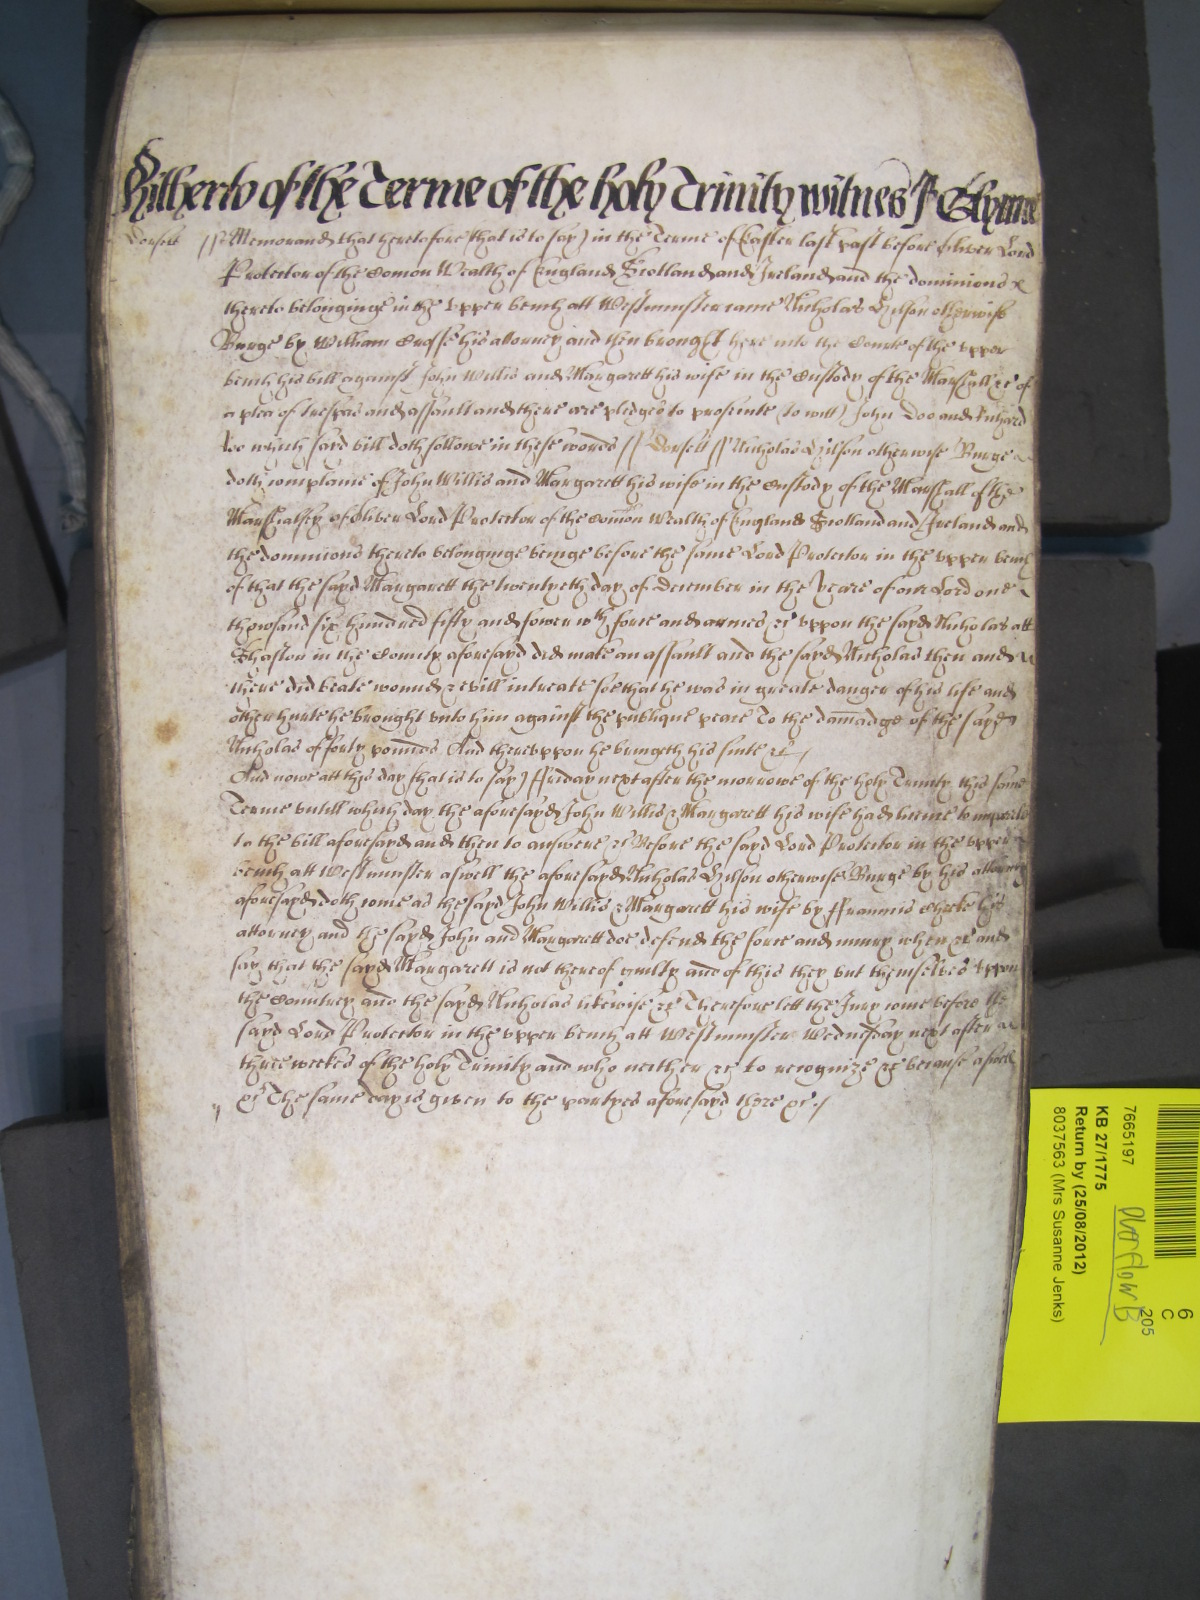 Hitherto of the Terme of the holy Trinity witnes J Glynne
Dorsett // Memorand that heretofore that is to say) in the Terme of Easter last past before Oliver Lord
Protector of the Comon Wealth of England Scotland and Ireland and the dominions
thereto belonginge in the upper bench att Westminster came Nicholas otherwise
Burge by William Crosse his attorney and then brought here into the Courte of the upper
bench his bill against John Willis and Margarett his wife in the Custody of the Marshall &c of
a plea of trespas and assault and there are pledges to prosecute (to witt) John Doo and Richard
Roo which sayd bill doth followe in these words // Dorsett // Nicholas otherwise Burge
doth complaine of John Willis and Margarett his wife in the Custody of the Marshall of the
Marshalsey of Oliver Lord Protector of the Comon Wealth of England Scotland and Ireland and
the dominions thereto belonginge beinge before the same Lord Protector in the upper bench
of that the sayd Margarett the twentyeth day of December in the yeare of our Lord one
thowsand six hundred fifty and fower wth force and armes &c uppon the sayd Nicholas att
Shaston in the County aforesayd did make an assault and the sayd Nicholas then and
there did beate wound & evill intreate soe that he was in greate danger of his life and
other hurte he brought unto him against the publique peace To the damadge of the sayd
Nicholas of forty pounds And thereuppon he bringeth his suite &c
And nowe att this day that is to say) ffriday next after the morrowe of the holy Trinity this same
Terme untill which day the aforesayd John Willis & Margarett his wife had licence to imparle
to the bill aforesayd and then to answere &c Before the sayd Lord Protector in the upper
bench att Westminster aswell the aforesayd Nicholas otherwise Burge by his attorney
aforesayd doth come as the sayd John Willis & Margarett his wife by ffrauncis Cheeke his
attorney and the sayd John and Margarett doe defend the force and iniury when &c and
say that the sayd Margarett is not thereof guilty and of this they put themselves uppon
the Countrey and the sayd Nicholas likewise &c Therefore lett the Jury come before the
sayd Lord Protector in the upper bench att Westminster Wednesday next after
three weekes of the holy Trinity and who neither &c to recognize &c because aswell
&c The same day is given to the partyes aforesayd there &c
7665197
KB 27/1775
Return by (25/08/2012)
8037563 (Mrs Susanne Jenks)
Overflow B
205
6
C